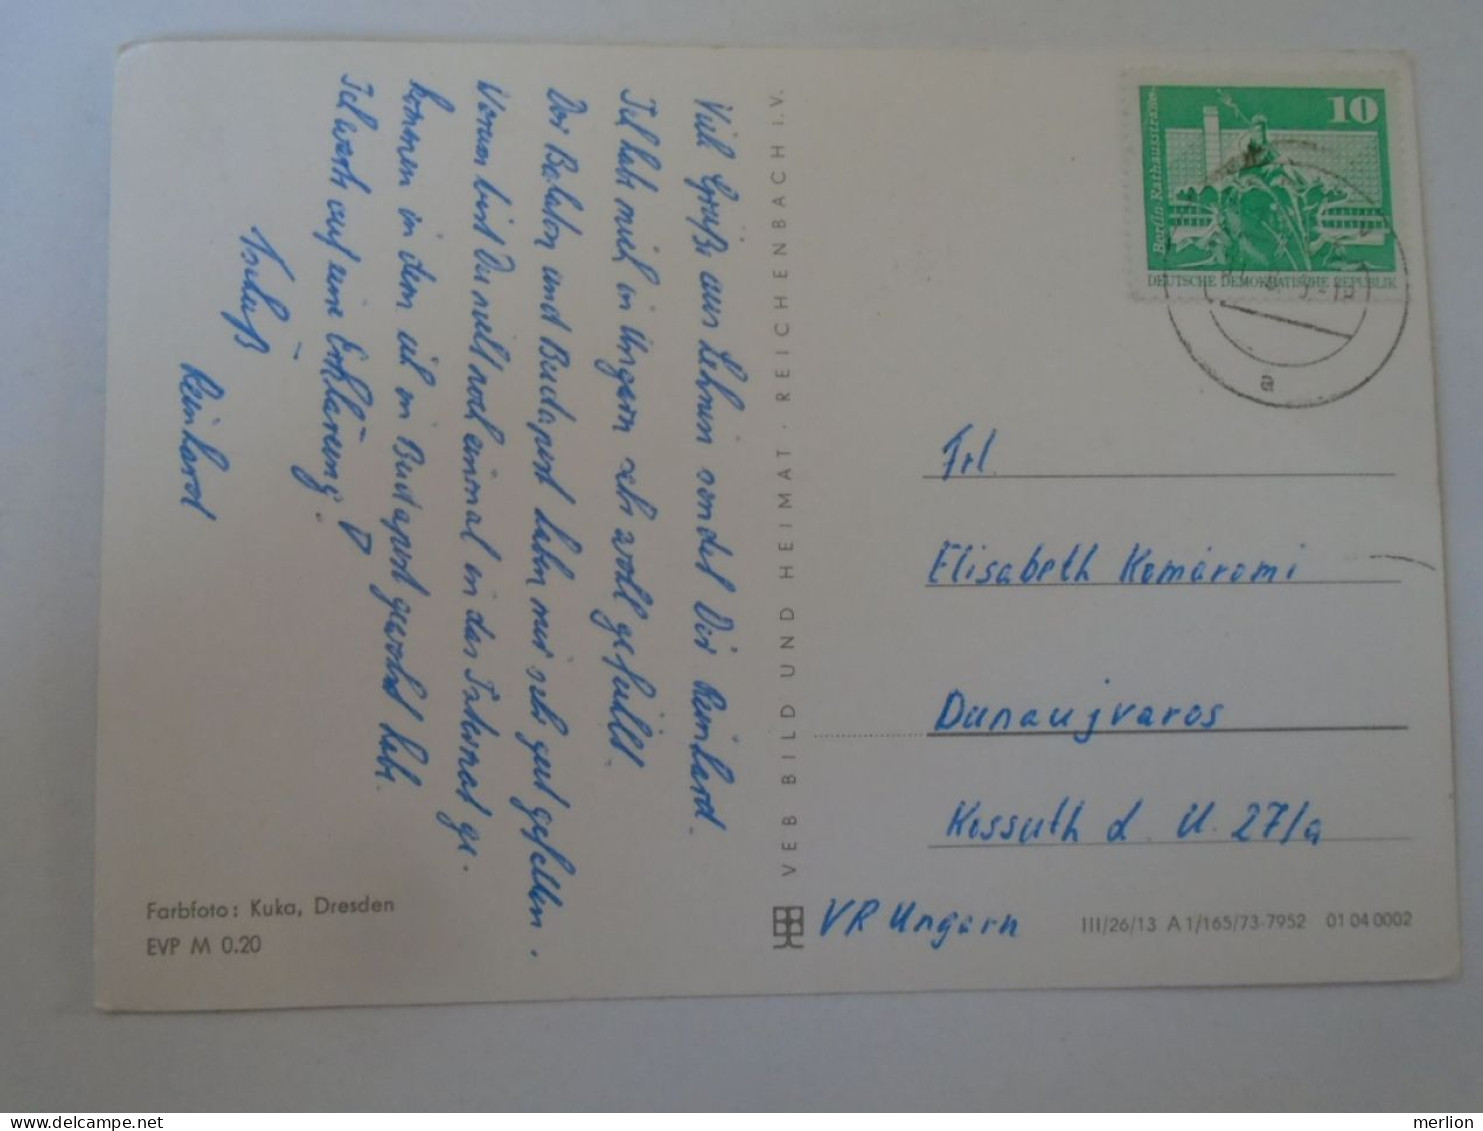 Viele Grüße aus Lehnin sendet Dir Reinhard.
Ich habe mich in Ungarn sehr wohl gefühlt.
Der Balaton und Budapest haben mir sehr gut gefallen.
Warum bist Du nicht noch einmal in das Internat ge-
kommen in dem ich in Budapest gewohnt habe.
Ich warte auf eine Erklärung.
Tschüß
Reinhard
Farbfoto: Kuka, Dresden
EVP M 0.20
VEB BILD UND HEIMAT · REICHENBACH I.V.
10
Berlin Rathausstrasse
DEUTSCHE DEMOKRATISCHE REPUBLIK
a
Frl.
Elisabeth Komáromi
Danaujvaros
Kossuth d U. 27/a
VR Ungarn
III/26/13 A 1/165/73-7952 01 04 0002
merlion